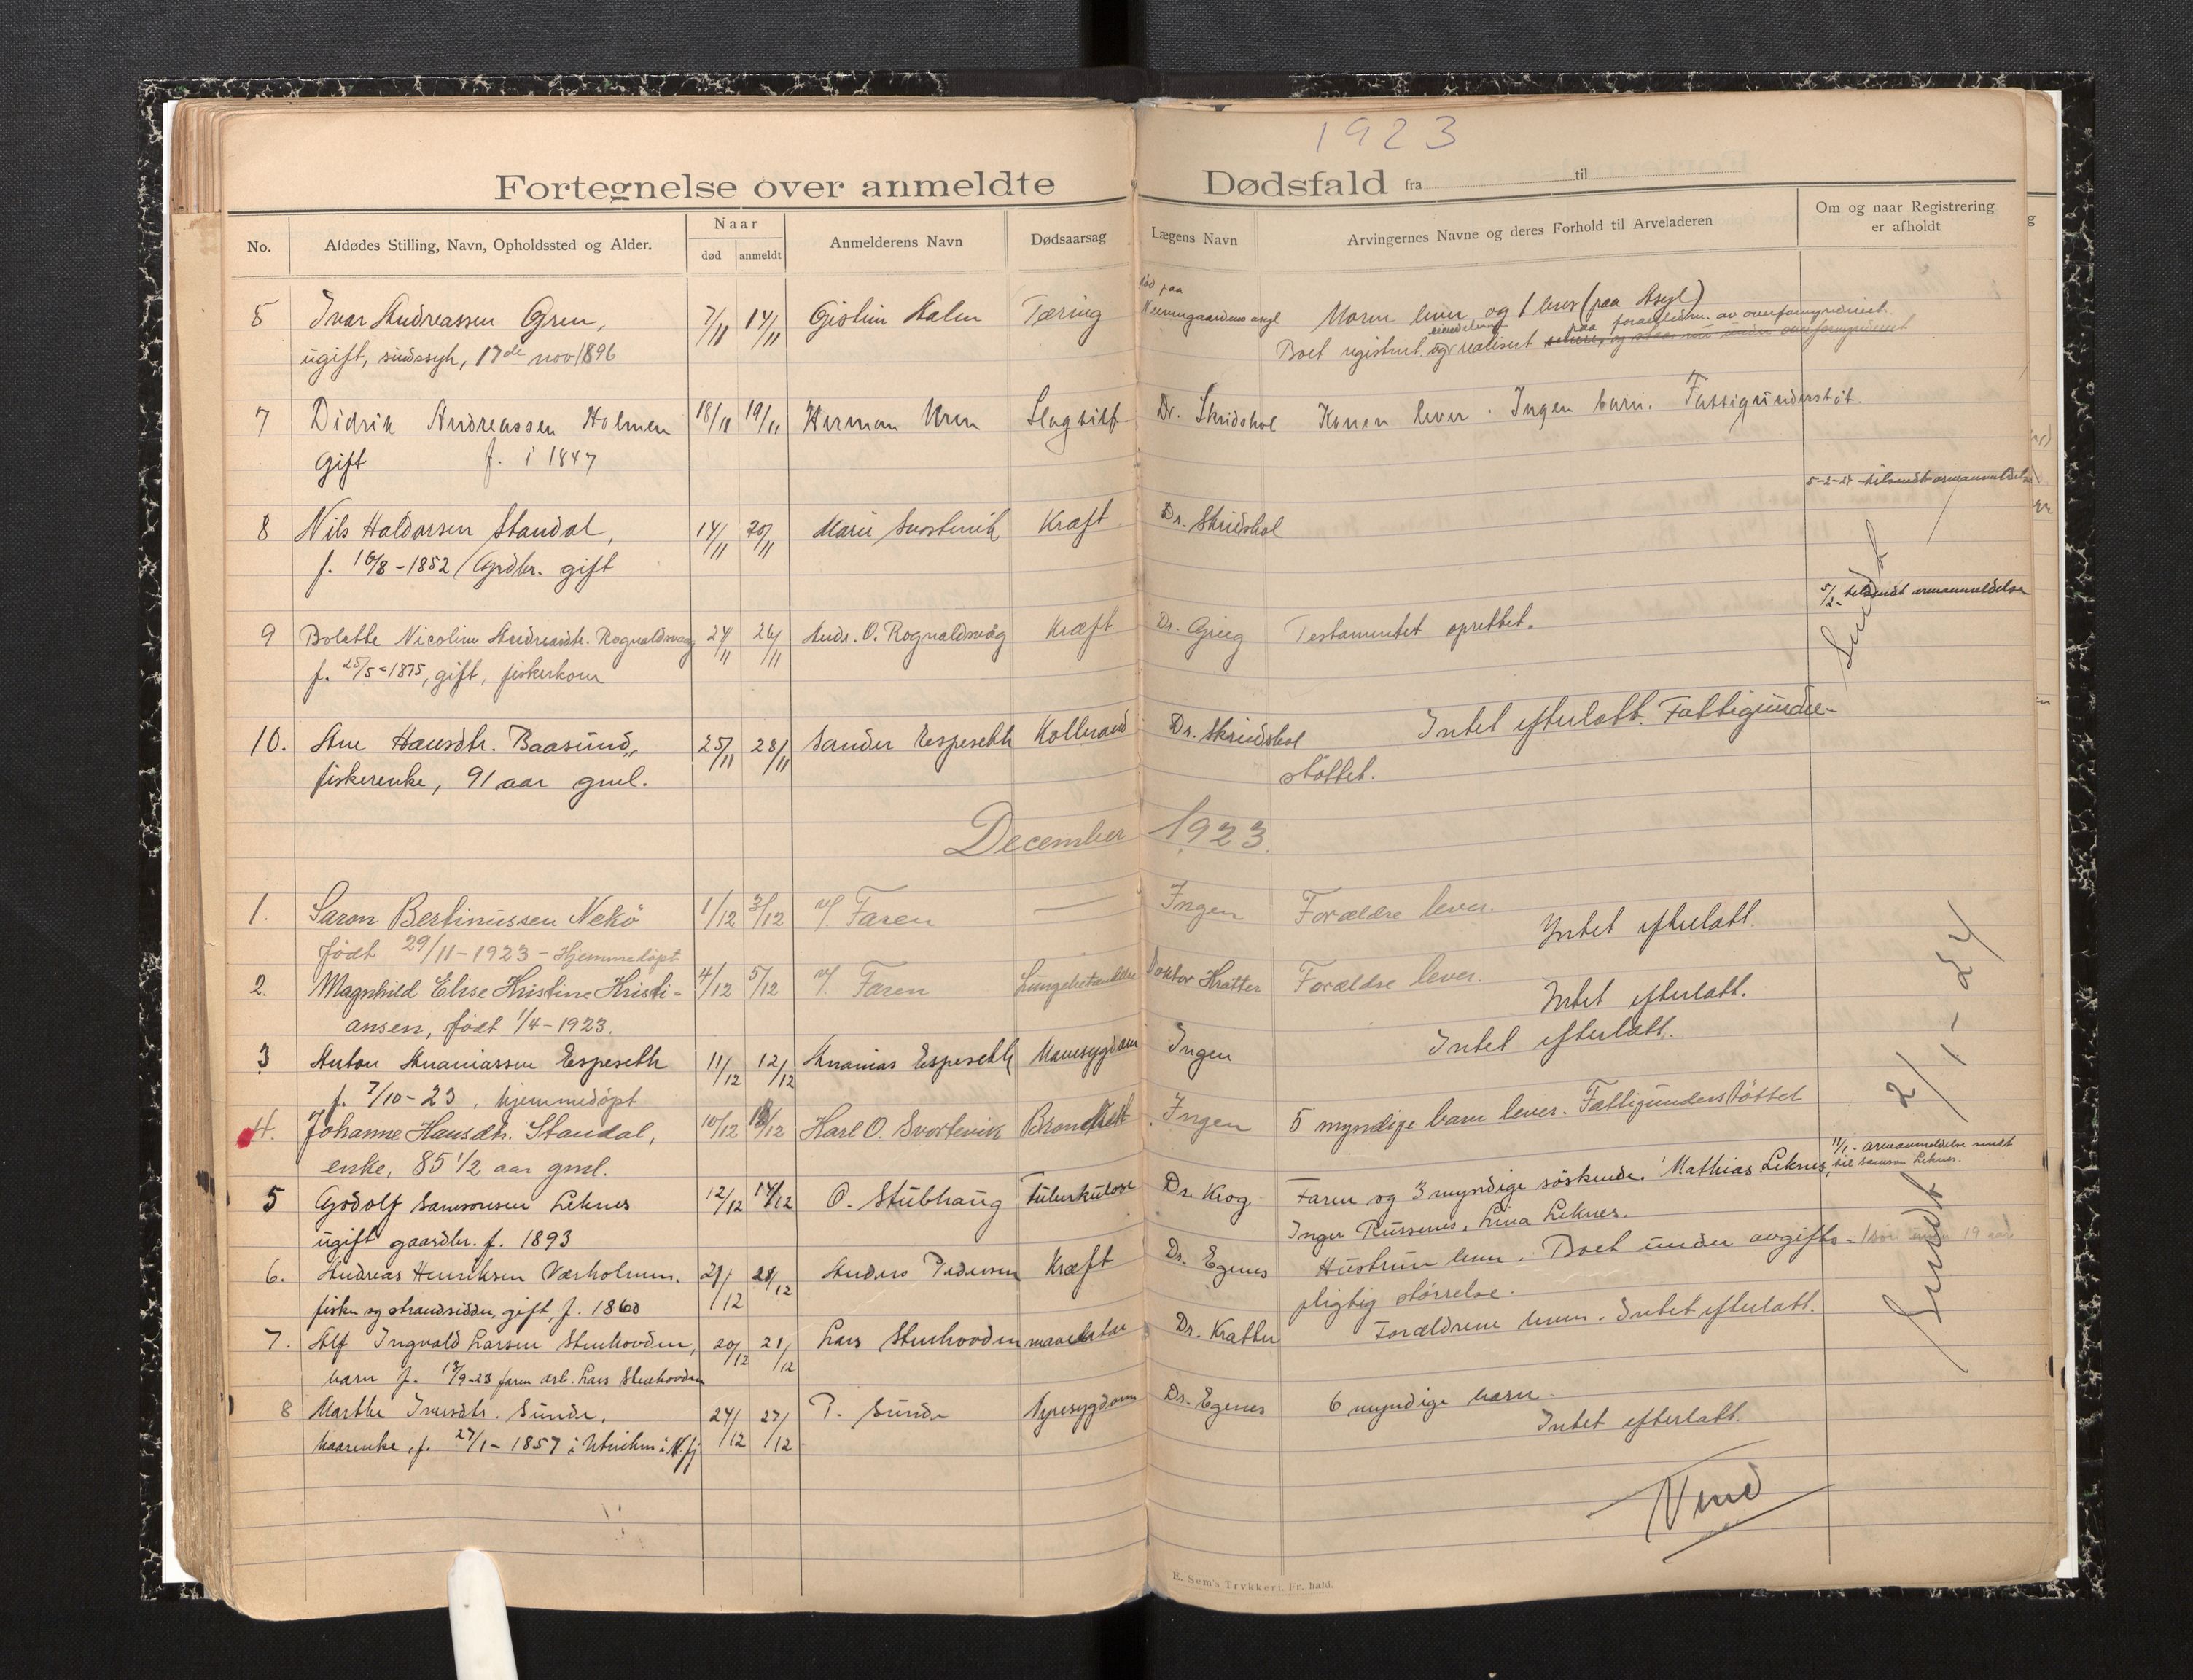 1923
Fortegnelse over anmeldte Dødsfald fra til
No. Afdødes Stilling, Navn, Opholdssted og Alder. Naar død anmeldt Anmelderens Navn Dødsaarsag Lægens Navn Arvingernes Navne og deres Forhold til Arveladeren Om og naar Registrering er afholdt
5 Ivar Andreassen Gren, 7/11 14/11 Malm Tæring død paa asyl Moren lever og 1 bror (paa Asyl)
ugift, sindssyk, 17de nov 1896 Boet registrert og realisert
7 Didrik Andreassen Holmen 18/11 19/11 Herman Uren Slagtilf. Dr. Skridshol Konen lever. Ingen barn. Fattigunderstøt.
Gift f. i 1847
5-2-24 tilsendt arveanmeldelse
8 Nils Haldorsen Standal, 14/11 20/11 Marie Svortevik Kræft Dr. Skridshol
f. 16/8-1852 Grdbr. gift
5/2- tilsendt arveanmeldelse
9 Bolette Nicoline Andreasdtr. Rognaldsvaag 24/11 26/11 Andr. O. Rognaldsvåg Kræft Dr. Grieg Testamentet oprettet.
f. 25/5-1875, gift, fiskerkone
Sendt
10. Ane Hansdtr. Baasund, 25/11 28/11 Sander Espeseth Koldbrand Dr. Skridshol Intet efterlatt. Fattigunder-
fiskerenke, 91 aar gml. støttet.
December 1923.
1. Saron Bertinussen Nekø 1/12 3/12 v/ Faren — Ingen Forældre lever. Intet efterlatt.
født 29/11-1923 - Hjemmedøpt
2. Magnhild Elise Kristine Kristi- 4/12 5/12 v/ Faren Lungebetændelse Doktor Kratter Forældre lever. Intet efterlatt.
ansen, født 1/4-1923.
3 Anton Ananiassen Espeseth 11/12 12/12 Ananias Espeseth Mavesygdom Ingen Intet efterlatt.
f. 7/10-23, hjemmedøpt
2/1-24
4. Johanne Hansdtr. Standal, 10/12 /12 Karl O. Svortevik Bronchit Ingen 5 myndige barn lever. Fattigunderstøttet
enke, 85 1/2 aar gml.
11/1- arveanmeldelse sendt til Samson Leknes.
5 Godolf Samsonsen Leknes 12/12 14/12 O. Stubhaug Tuberkulose Dr. Krog Faren og 3 myndige søskende. Mathias Leknes,
ugift gaardbr. f. 1893 Inger Russenes, Lina Leknes.
6. Andreas Henriksen Værholmen. 27/12 28/12 Anders Pedersen Kræft Dr. Egenes Hustrun lever. Boet under avgifts-
fisker og strandsidder, gift, f. 1860 pligtig størrelse.
Sendt
7. Alf Ingvald Larsen Stenhovden, 20/12 21/12 Lars Stenhovden mavekatar Dr. Kratter Forældrene lever. Intet efterlatt.
barn f. 13/9-23 faren arb. Lars Stenhovden
8 Marthe Iversdtr. Sunde, 24/12 27/12 P. Sunde Nyresygdom Dr. Egenes 6 myndige barn.
kaarenke, f. 27/1-1857 i Intet efterlatt.
E. Sem's Trykkeri. Fr. hald.